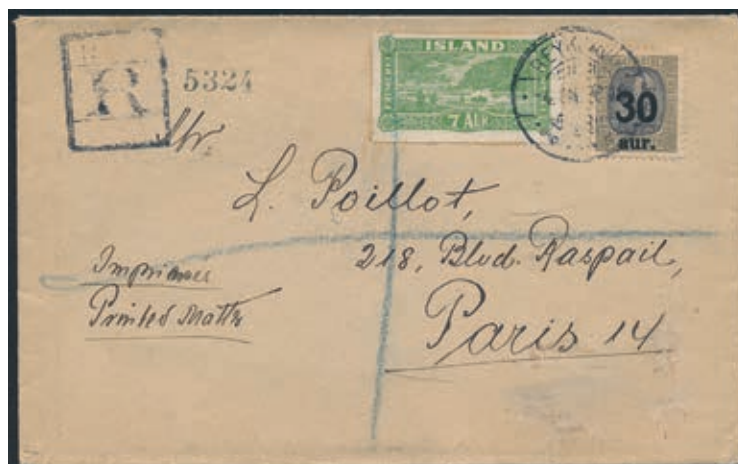 R 5324
ÍSLAND
7 AUR
REYKJAVÍK
30
aur.
Mr
L. Poillot,
218, Blvd. Raspail,
Paris 14
Imprimés
Printed Matter